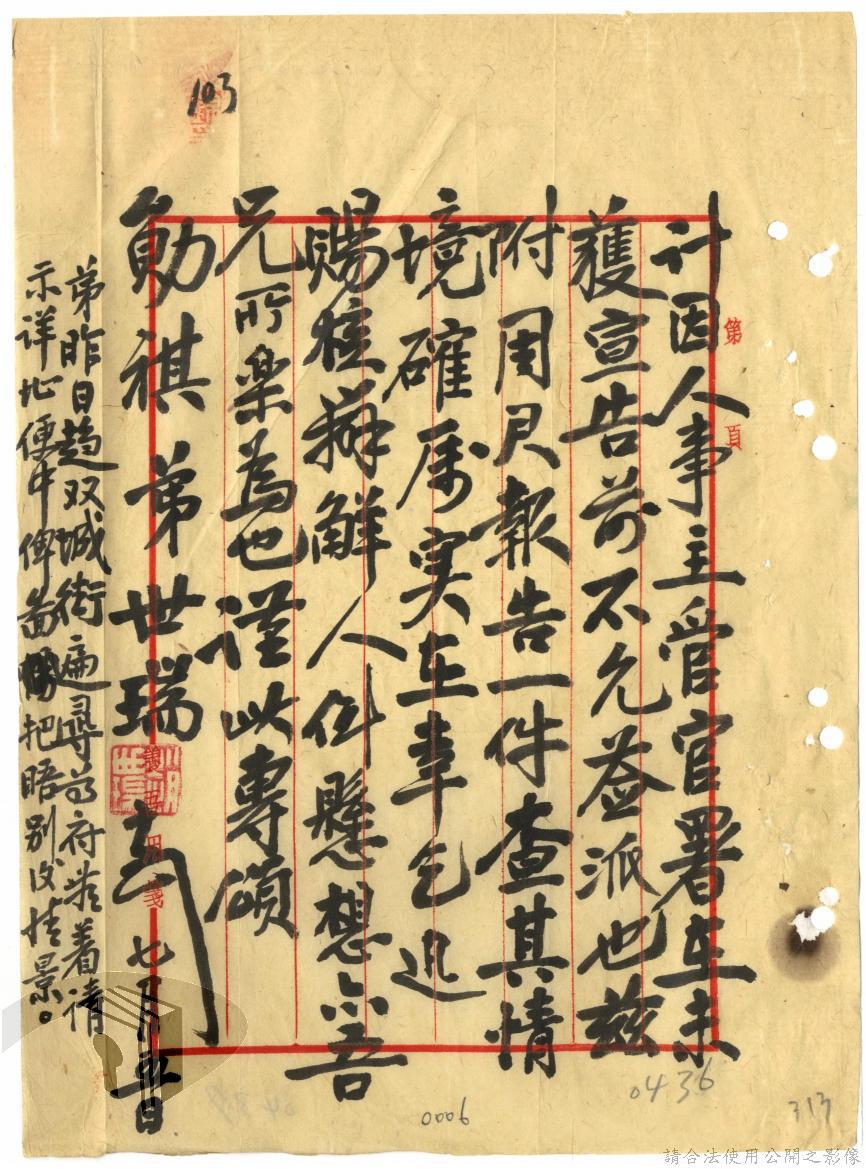 103
第 頁
計因人事主管官署在未
獲宣告前不允益派也茲
附周君報告一件查其情
境確屬実在幸乞迅
賜核辦解人倒懸想亦吾
兄所樂為也謹此專頌
勛祺 弟世瑞
七月廿五日
弟昨日趨双城街遍尋尊府先着情
示詳址便中俾面把晤別後情景。
0436
0006
313
請合法使用公開之影像